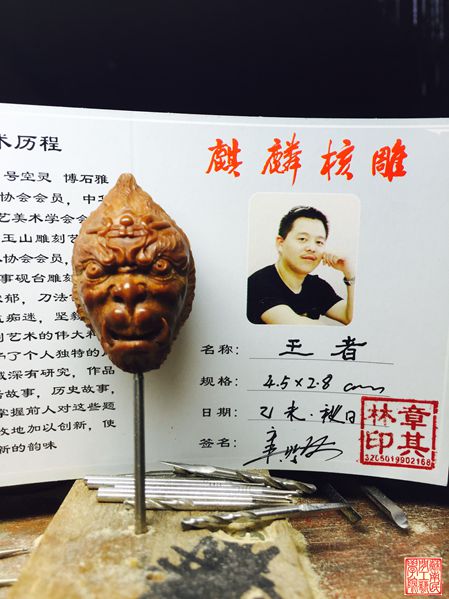 术历程
号空灵 博石雅
协会会员，中
艺美术学会会
玉山雕刻艺
协会会员，
事砚台雕刻
郁，刀法
痴迷，坚
刻艺术的伟大
了个人独特的
域深有研究，作品
故事，历史故事，
掌握前人对这些题
地加以创新，使
新的韵味
麒麟核雕
名称：王者
规格：4.5×2.8 cm
日期：乙未·秋日
签名：
章其
林印
3205019902168